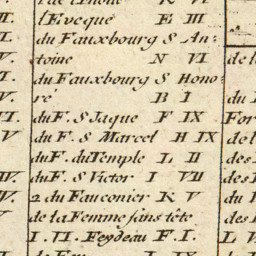 II. l'Eveque E III
I. du Fauxbourg S An-
V. toine N VI de l
II. du Fauxbourg S Hono-
V. ré B I du
I. du F. S Jaque F IX For
V du F. S Marcel H IX de l
du F. du Temple L II des
III. du F. S Victor I VII des
IV. 2 du Fauconier K V du
V de la Femme sans tête des
I. VI. Feydeau F. I. L V